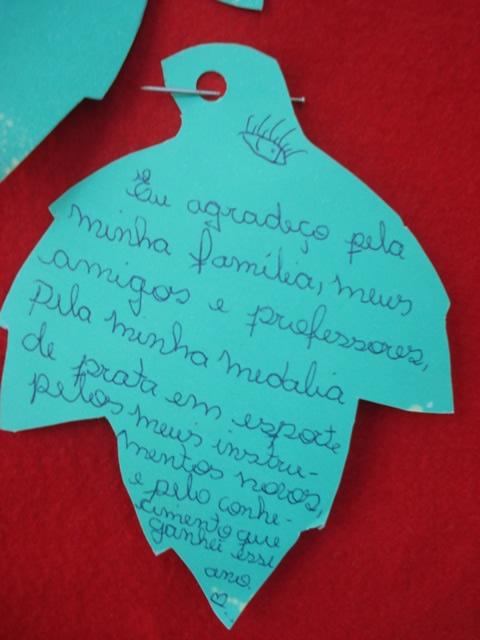 Eu agradeço pela
minha família, meus
amigos e professores,
pela minha medalia
de prata em esporte
pelos meus instru-
mentos novos,
e pelo conhe-
cimento que
ganhei essi
ano.